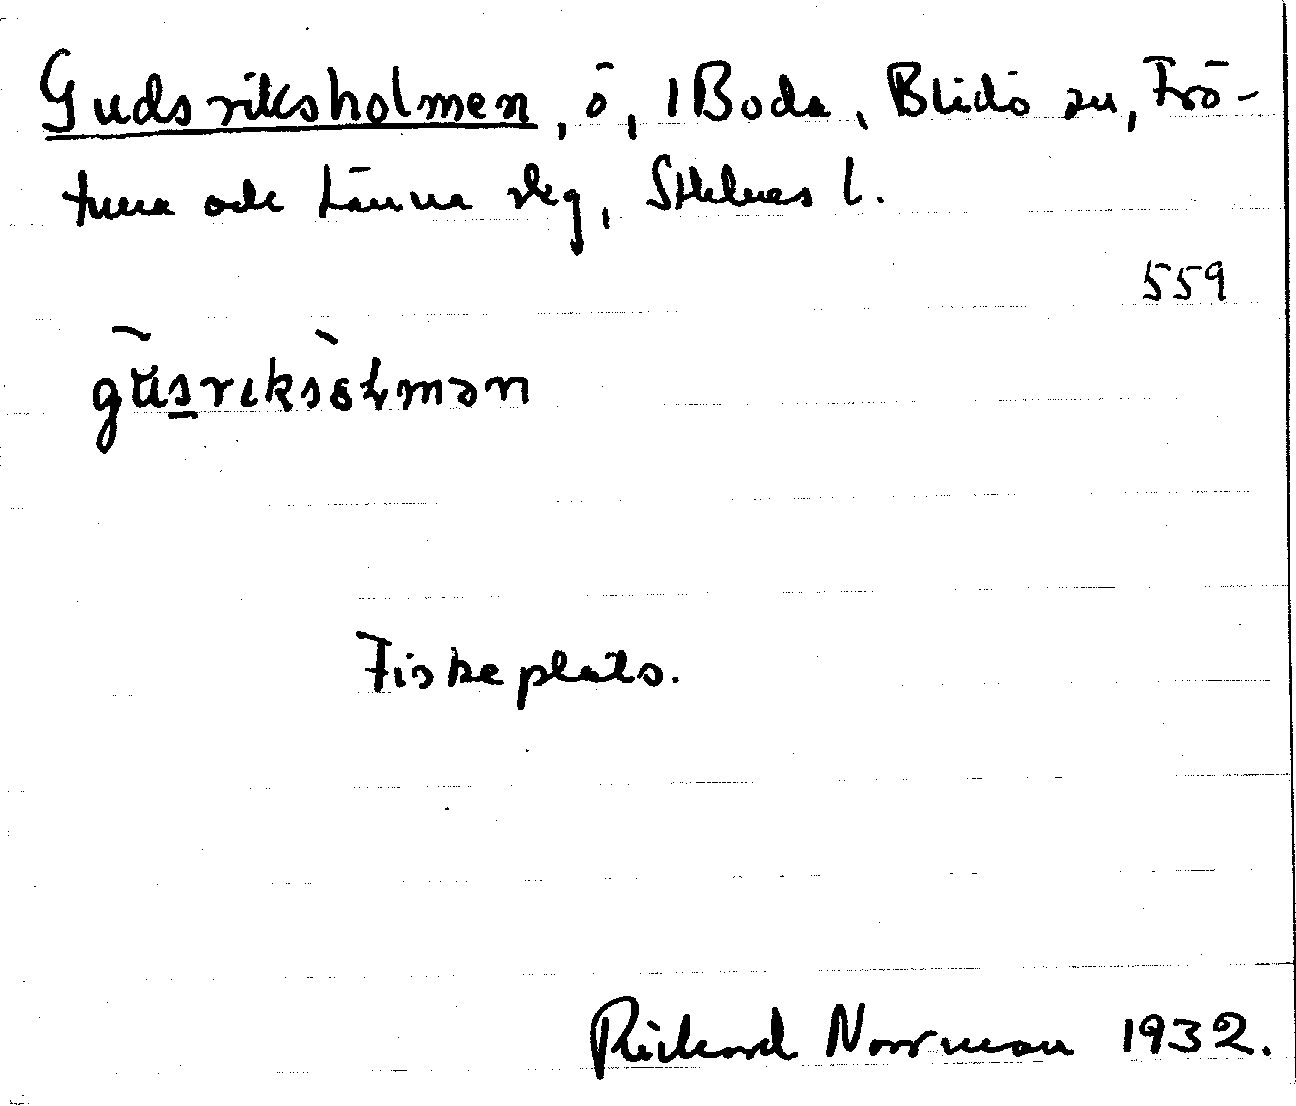 Gudsriksholmen, ö, 1 Boda, Blidö sn, Frö-
tuna och Länna skg, Sthlms l.
559
gu̇sriksɷlmən
Fiskeplats.
Rickard Norrman 1932.